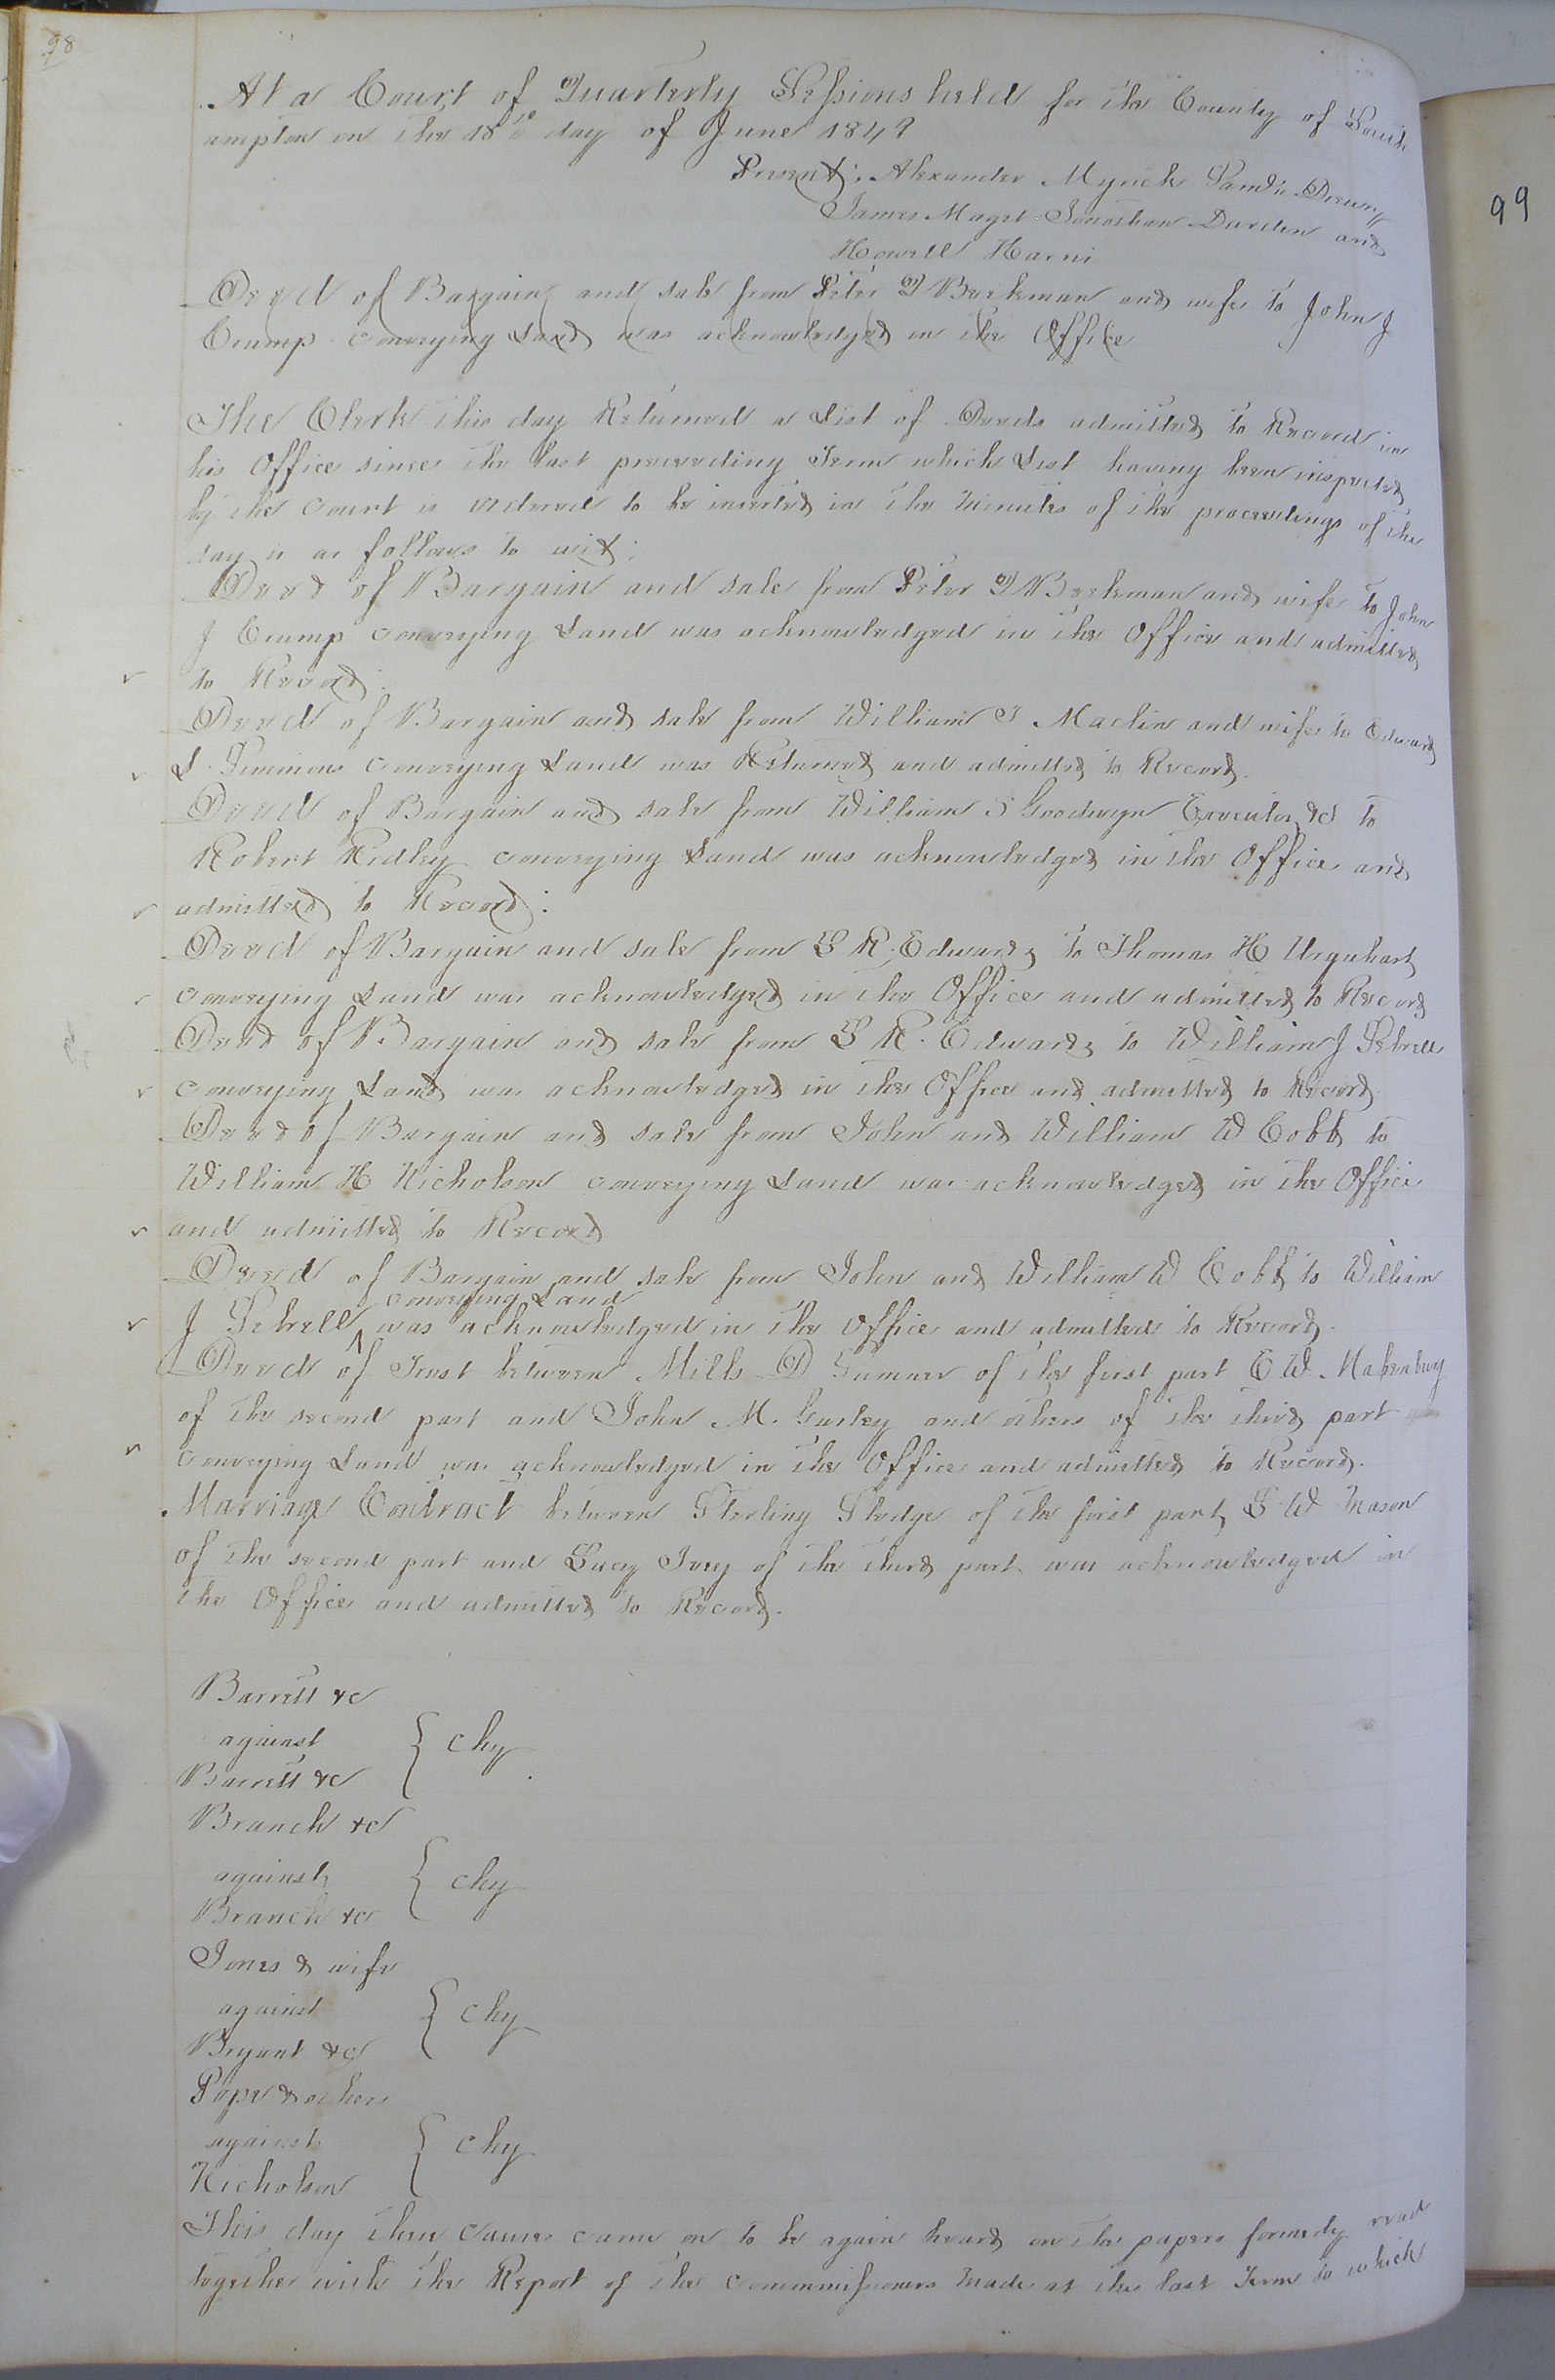 98
At a Court of Quarterly Sessions held for the County of South
ampton on the 18th day of June 1849
Present: Alexander Myrick Saml: Drewry
James Maget Jonathan Darden and
Howell Harris
Deed of Bargain and sale from Peter D Beekman and wife to John J
Crump conveying Land was acknowledged in the Office
The Clerk this day Returned a List of Deeds admitted to Record in
his Office since the last preceeding Term which List having been inspected
by the Court is ordered to be inserted in the minutes of the proceedings of the
day is as follows to wit:
Deed of Bargain and sale from Peter D Beekman and wife to John
J Crump conveying Land was acknowledged in the Office and admitted
to Record:
Deed of Bargain and sale from William T Maclin and wife to Edward
L Simmons conveying Land was Returned and admitted to Record.
Deed of Bargain and sale from William S Goodwyn Executor &c to
Robert Ridley conveying Land was acknowledged in the Office and
admitted to Record:
Deed of Bargain and sale from L R. Edwards to Thomas H Urquhart
conveying Land was acknowledged in the Office and admitted to Record
Deed of Bargain and sale from L R. Edwards to William J Sebrell
conveying Land was acknowledged in the Office and admitted to Record.
Deed of Bargain and sale from John and William W Cobb to
William H Nicholson conveying Land was acknowledged in the Office
and admitted to Record
Deed of Bargain and sale from John and William W Cobb to William
conveying Land
J Sebrell ^ was acknowledged in the Office and admitted to Record.
Deed of Trust between Mills D Sumner of the first part E W.
of the second part and John M. Gurley and others of the third part
conveying Land was acknowledged in the Office and admitted to Record.
Marriage Contract between Sterling Sledge of the first part L W Mason
of the second part and Lucy Ivey of the third part was acknowledged in
the Office and admitted to Record.
Barrett &c
against { Chy
Barrett &c
Branch &c
against { Chy
Branch &c
Jones & wife
against { Chy
Bryant &c
Pope & others
against { Chy
Nicholson
This day these causes came on to be again heard on the papers formerly read
together with the Report of the Commmissioners made at the last Term to which
99